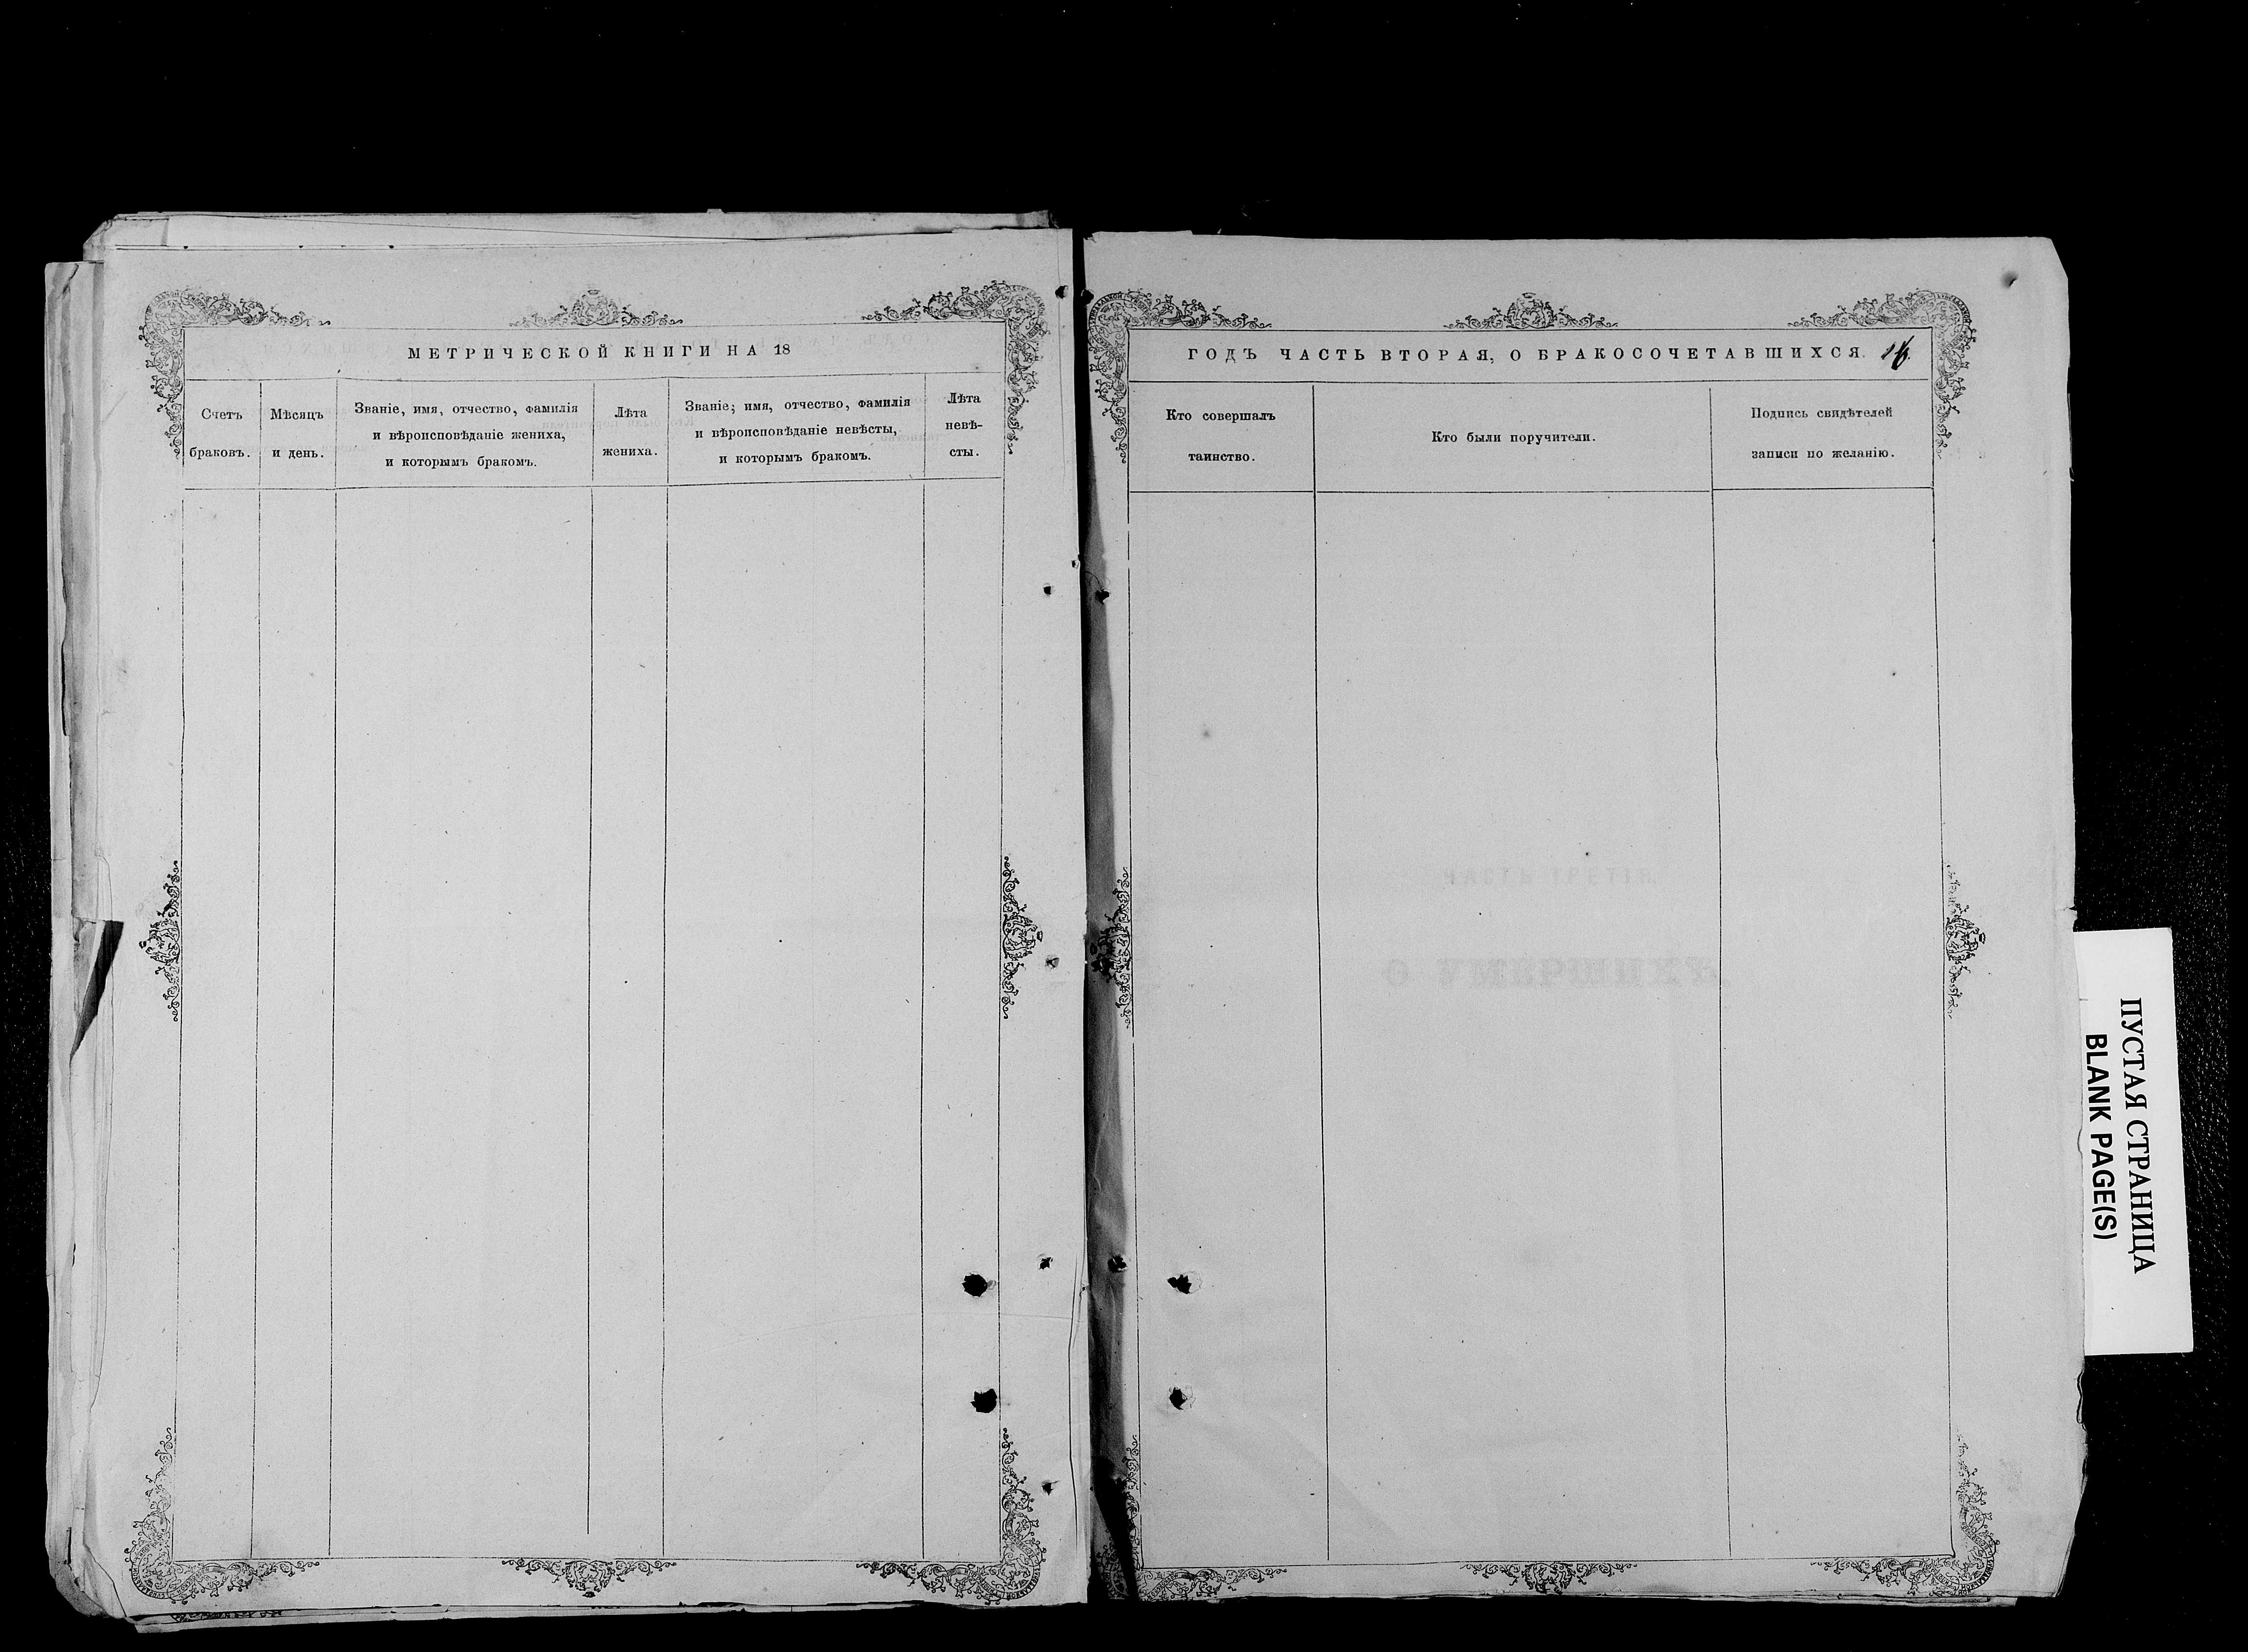 МЕТРИЧЕСКОЙ КНИГИ НА 18
Счетъ
браковъ.
Мѣсяцъ
и день.
Званіе, имя, отчество, фамилія
и вѣроисповѣданіе жениха,
и которымъ бракомъ.
Лѣта
жениха.
Званіе; имя, отчество, фамилія
и вѣроисповѣданіе невѣсты,
и которымъ бракомъ.
Лѣта
невѣ-
сты.
ГОДЪ ЧАСТЬ ВТОРАЯ, О БРАКОСОЧЕТАВШИХСЯ.
Кто совершалъ
таинство.
Кто были поручители.
Подпись свидѣтелей
записи по желанію.
ЧАСТЬ ТРЕТІЯ,
О УМЕРШИХЪ
ПУСТАЯ СТРАНИЦА
BLANK PAGE(S)